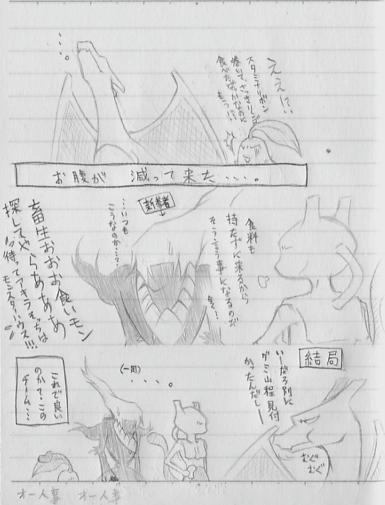 …。
ええ!?
スタミナリボン
巻いて、さっきリンゴ
食べたばかりなのに
もう!?
お腹が 減って来た…。
食料も
持たずに来るから
そういう事になるのだ
新着者
…いつも
こうなのか…?
畜生おおお食いモン
探してやらああああ
って待ってアキラそっちは
モンスターハウス!!!
結局
いーだろ別に
グミ山程見付
かったんだしー
むぐ
むぐ
(一同)
・・・。
これで良い
のかて、この
チーム…
オー人事 オー人事